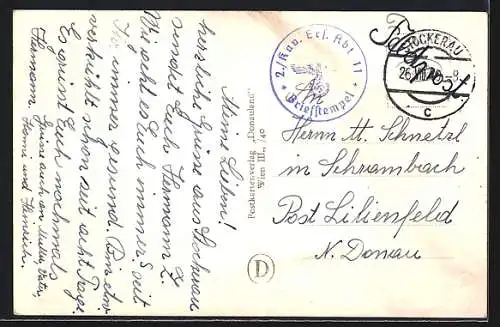 Meine Lieben!
herzliche Grüsse aus Stockerau
sendet Euch Hermann L.
Wie geht es Euch immer? Seit
Ihr immer gesund. Bin etwas
verkühlt schon seit acht Tage.
Es grüsst Euch nochmals
Hermann.
Grüsse auch an Mutter, Vater,
Hanni und Heinrich.
Postkartenverlag „Donauland"
Wien III., /40
D
2./Kav. Ers. Abt. 11
Briefstempel
An
Feldpost.
STOCKERAU
c
Herrn M. Schnetzl
in Schrambach
Post Lilienfeld
N. Donau